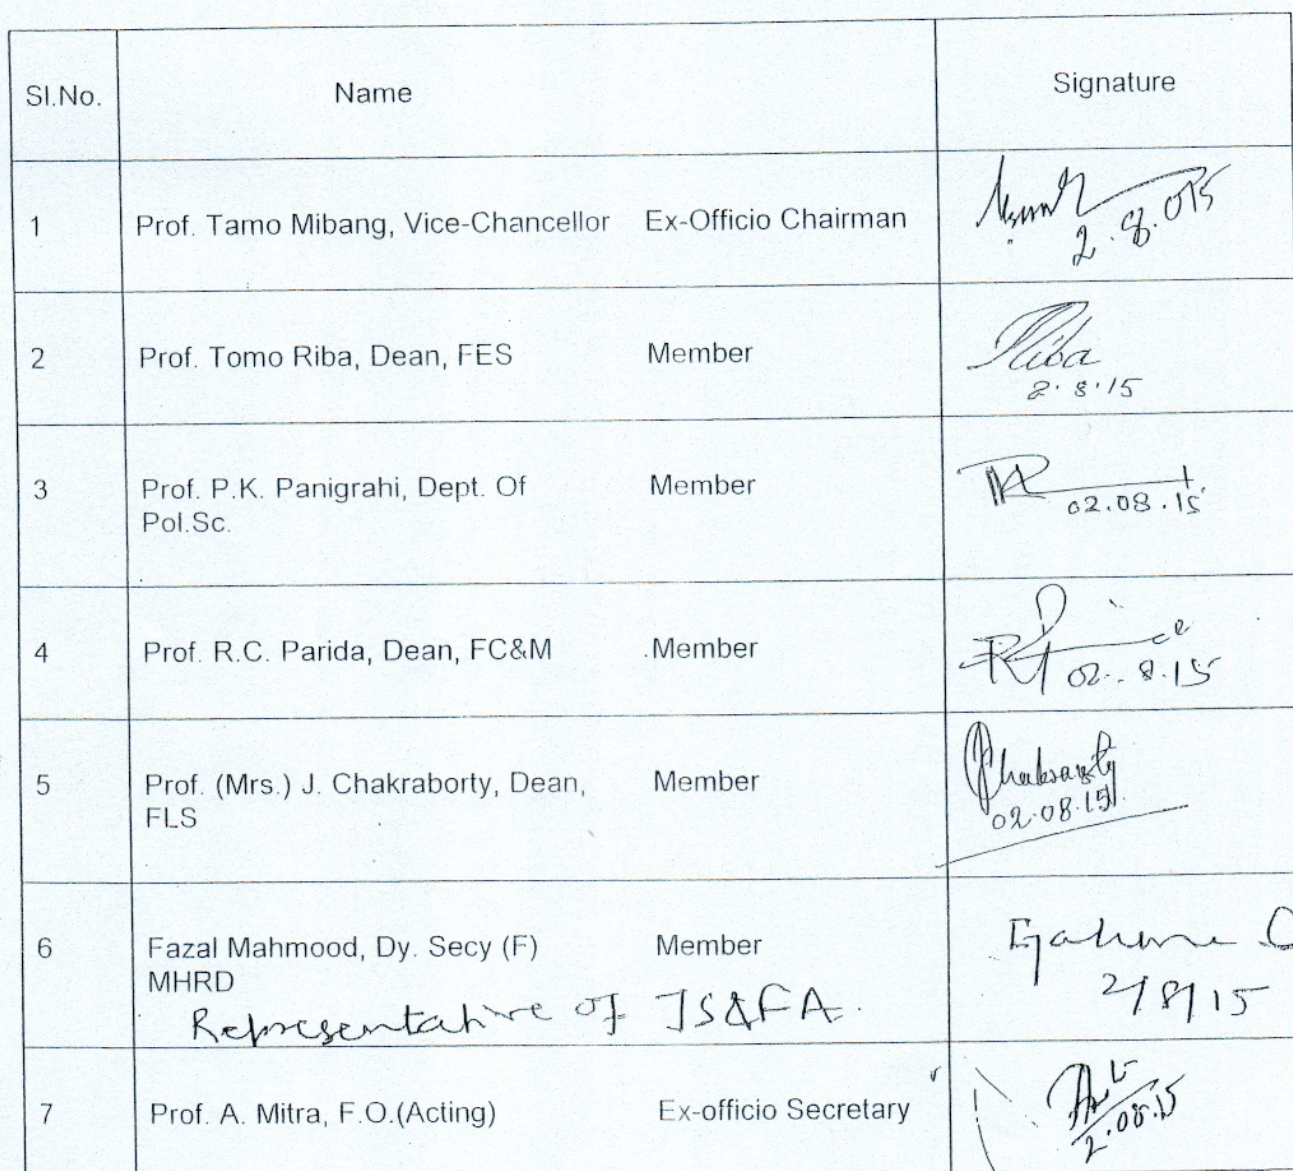 Sl.No. Name Signature
1 Prof. Tamo Mibang, Vice-Chancellor Ex-Officio Chairman
2.8.015
2 Prof. Tomo Riba, Dean, FES Member Riba
2.8.15
3 Prof. P.K. Panigrahi, Dept. Of Member
Pol.Sc.
02.08.15
4 Prof. R.C. Parida, Dean, FC&M Member
02.8.15
5 Prof. (Mrs.) J. Chakraborty, Dean, Member
FLS
02.08.15
6 Fazal Mahmood, Dy. Secy (F) Member
MHRD
2/8/15
Representative of JS&FA.
7 Prof. A. Mitra, F.O.(Acting) Ex-officio Secretary
2.08.15